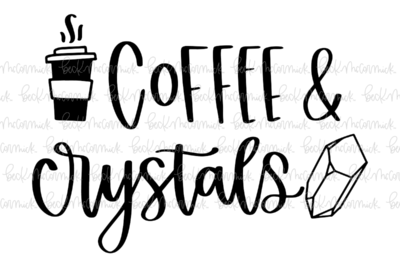 CoFFEE &
crystals